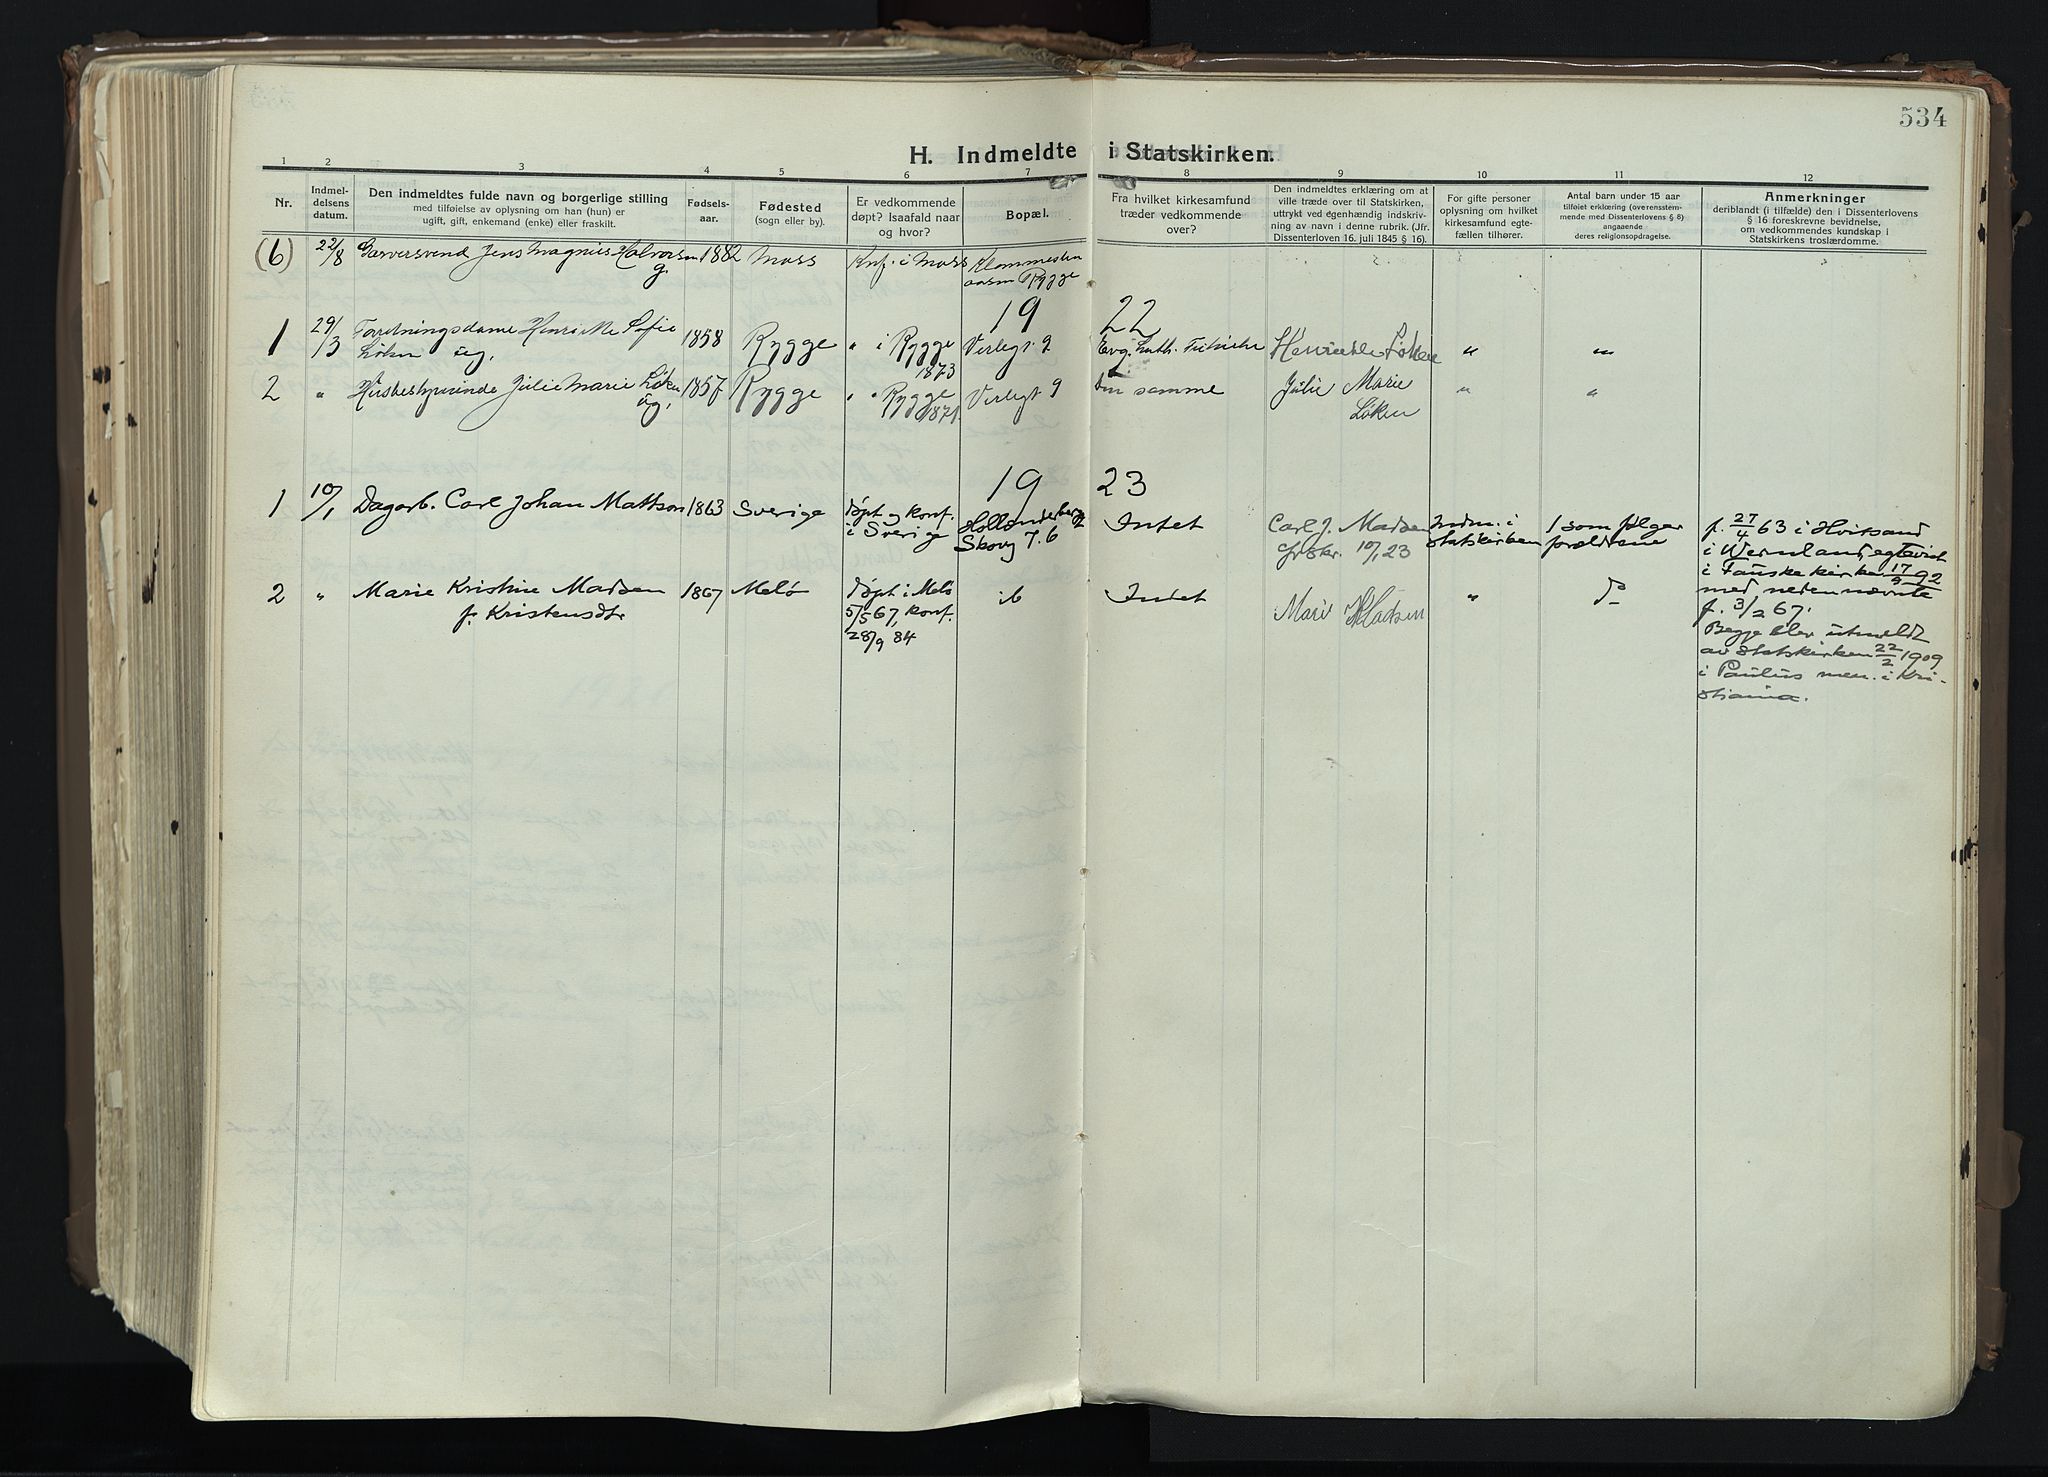 534
H. Indmeldte i Statskirken.
1 2 3 4 5 6 7 8 9 10 11 12
Nr.
Indmel-
delsens
datum.
Den indmeldtes fulde navn og borgerlige stilling
med tilføielse av oplysning om han (hun) er
ugift, gift, enkemand (enke) eller fraskilt.
Fødsels-
aar.
Fødested
(sogn eller by).
Er vedkommende
døpt? Isaafald naar
og hvor?
Bopæl.
Fra hvilket kirkesamfund
træder vedkommende
over?
Den indmeldtes erklæring om at
ville træde over til Statskirken,
uttrykt ved egenhændig indskriv-
ning av navn i denne rubrik. (Jfr.
Dissenterloven 16. juli 1845 § 16).
For gifte personer
oplysning om hvilket
kirkesamfund egte-
fællen tilhører.
Antal barn under 15 aar
tilføiet erklæring (overensstem-
mende med Dissenterlovens § 8)
angaaende
deres religionsopdragelse.
Anmerkninger
deriblandt (i tilfælde) den i Dissenterlovens
§ 16 foreskrevne bevidnelse,
om vedkommendes kundskap i
Statskirkens troslærdomme.
(6) 22/8 Garversvend Jens Magnus Halvorsen 1882 Moss Knf. i Moss
g. Rygge
19 22
1 29/3 Forretningsdame Henrikke Sofie 1858 Rygge " i Rygge Verlegt 9 Evg. luth. Frikirke Henrikke Løken " "
Løken ug. 1873
2 " Husbestyrerinde Julie Marie Løken 1857 Rygge " " Rygge Verlegt 9 Den samme Julie Marie " "
ug. 1871 Løken
19 23
1 10/1 Dagarb. Carl Johan Mattson 1863 Sverige døpt og konf. Intet Carl J. Madsen Indm. i 1 som følger f. 27/4 63 i Hvitsand
i Sverige Skovg 7.6 10/1 23 statskirken forældrene i Wermland, egteviet
i Fauske kirke 17/9 92
2 " Marie Kristine Madsen 1867 Melø døpt i Melø ib Intet Marie Madsen " do med nedennævnte
f. Kristensdtr 5/5 67, konf. f. 3/2 67.
28/9 84 Begge blev utmeldt
av statskirken 22/2 1909
i Paulus men. i Kri-
stiania.